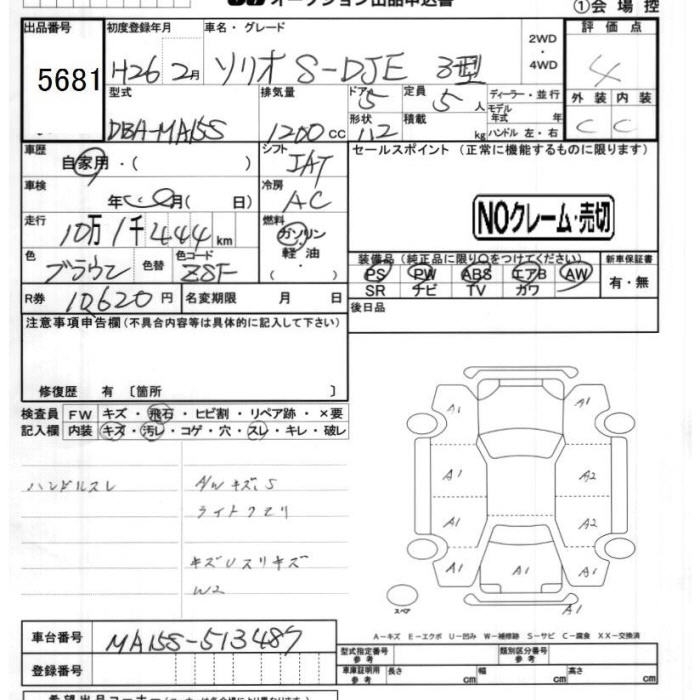 オークション出品申込書
①会場控
出品番号 初度登録年月 車名・グレード 2WD・4WD 評価点
5681 H26 2月 ソリオ S-DJE 3型 4
型式 排気量 ドア 定員 ディーラー・並行 外装 内装
DBA-MA15S 1200cc 5 5人 モデル年式 年 C C
形状 112 積載 kg ハンドル 左・右
車歴 シフト セールスポイント(正常に機能するものに限ります)
自家用・( ) IAT
車検 冷房
年 月( 日) AC
NOクレーム・売切
走行 燃料
10万1千444km ガソリン
軽油
( )
色 色替 色コード
ブラウン ZSF
装備品(純正品に限り○をつけてください) 新車保証書
PS PW ABS エアB AW 有・無
SR ナビ TV ガワ
R券 10620円 名変期限 月 日 後日品
注意事項申告欄(不具合内容等は具体的に記入して下さい)
修復歴 有〔箇所 〕
検査員 FW キズ・飛石・ヒビ割・リペア跡・×要
記入欄 内装 キズ・汚レ・コゲ・穴・スレ・キレ・破レ
ハンドルスレ A/Wキズ、S
ライトクモリ
キズUスリキズ
W2
A1 A1
A1 A2
A1 A2
A1 A1 A1
スペア A1
A-キズ E-エクボ U-凹み W-補修跡 S-サビ C-腐食 XX-交換済
車台番号 MA15S-513487
型式指定番号 参考 類別区分番号 参考
登録番号
車庫証明用 参考 長さ cm 幅 cm 高さ cm
希望出品コーナー